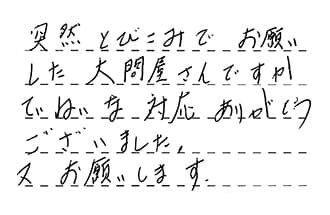 突然とびこみで お願い
した 大問屋さんですが
ていねいな 対応 ありがとう
ございました。
又 お願いします.